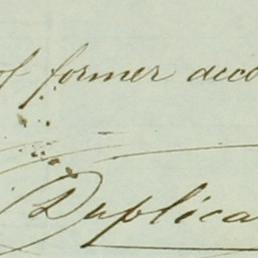 of former acco
Duplica